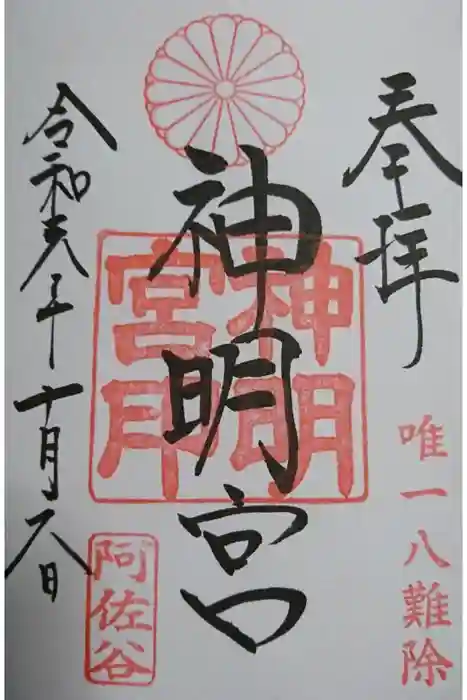 奉拝
唯一八難除
神明宮
神明宮印
令和元年十月六日
阿佐谷